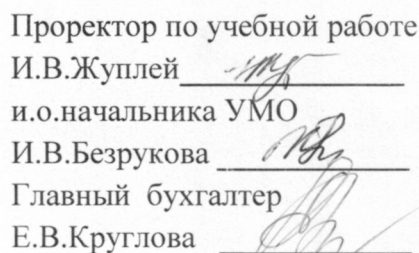 Проректор по учебной работе
И.В.Жуплей
и.о.начальника УМО
И.В.Безрукова
Главный бухгалтер
Е.В.Круглова